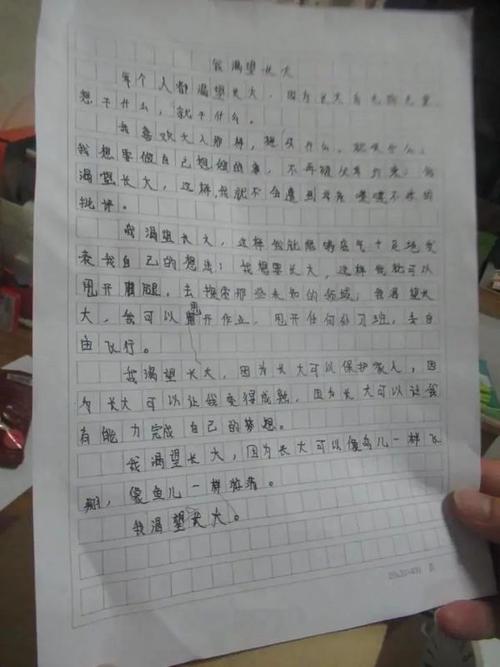 我渴望长大
每个人都渴望长大,因为长大后无拘无束
想干什么,就干什么。
我喜欢大人那样,想干什么,就干什么。
我想要做自己想做的事,不再被父母约束。我
渴望长大,这样我就不会遭到父亲喋喋不休的
批评。
我渴望长大,这样我就能够底气十足地发
表我自己的想法;我想要长大,这样我就可以
甩开腿,去探索那些未知的领域;我渴望长
大,我可以甩开作业,甩开任何补习班,去自
由飞行。
我渴望长大,因为长大可以保护家人,因
为长大可以让我变得成熟,因为长大可以让我
有能力完成自己的梦想。
我渴望长大,因为长大可以像鸟儿一样飞
翔,像鱼儿一样游着。
我渴望长大。